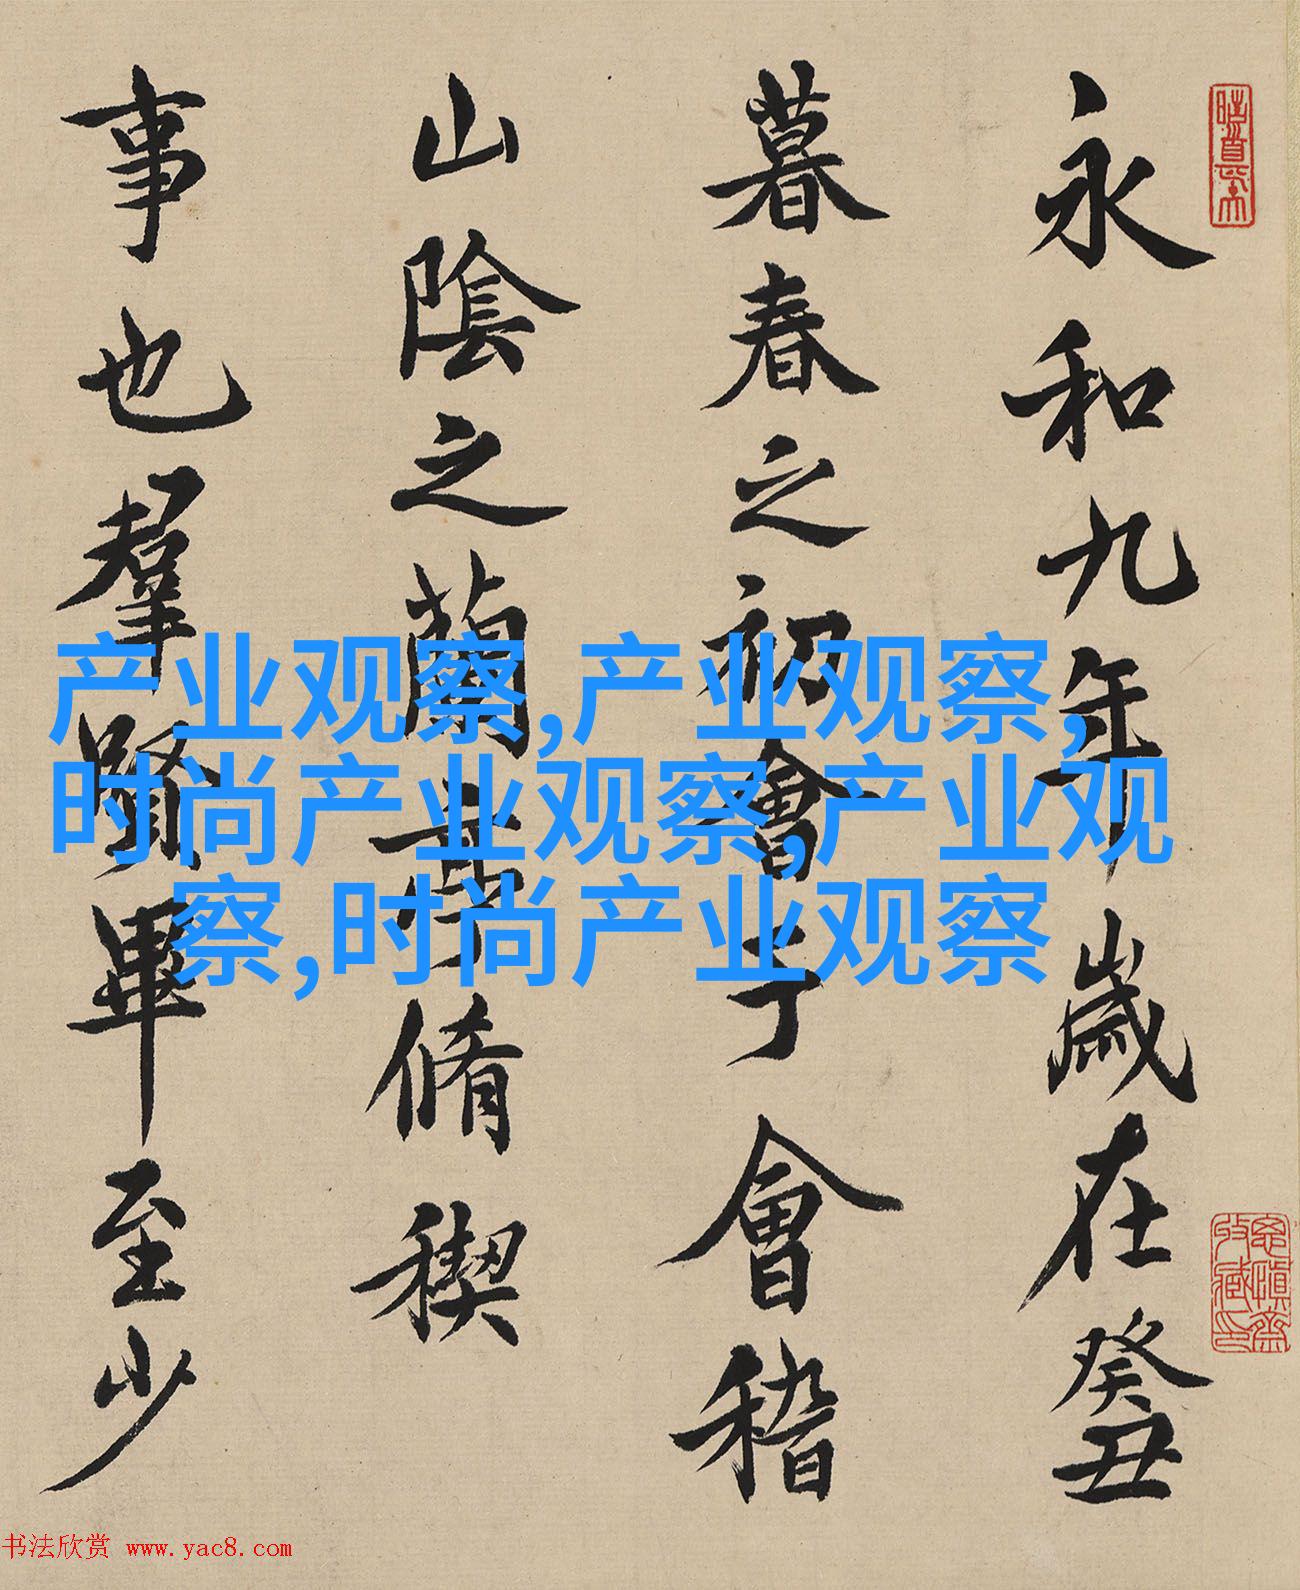 永和九年歲在癸丑
暮春之初會于會稽
山陰之蘭亭脩稧
事也羣賢畢至少
产业观察,产业观察,
时尚产业观察,产业观
察,时尚产业观察
书法欣赏 www.yac8.com